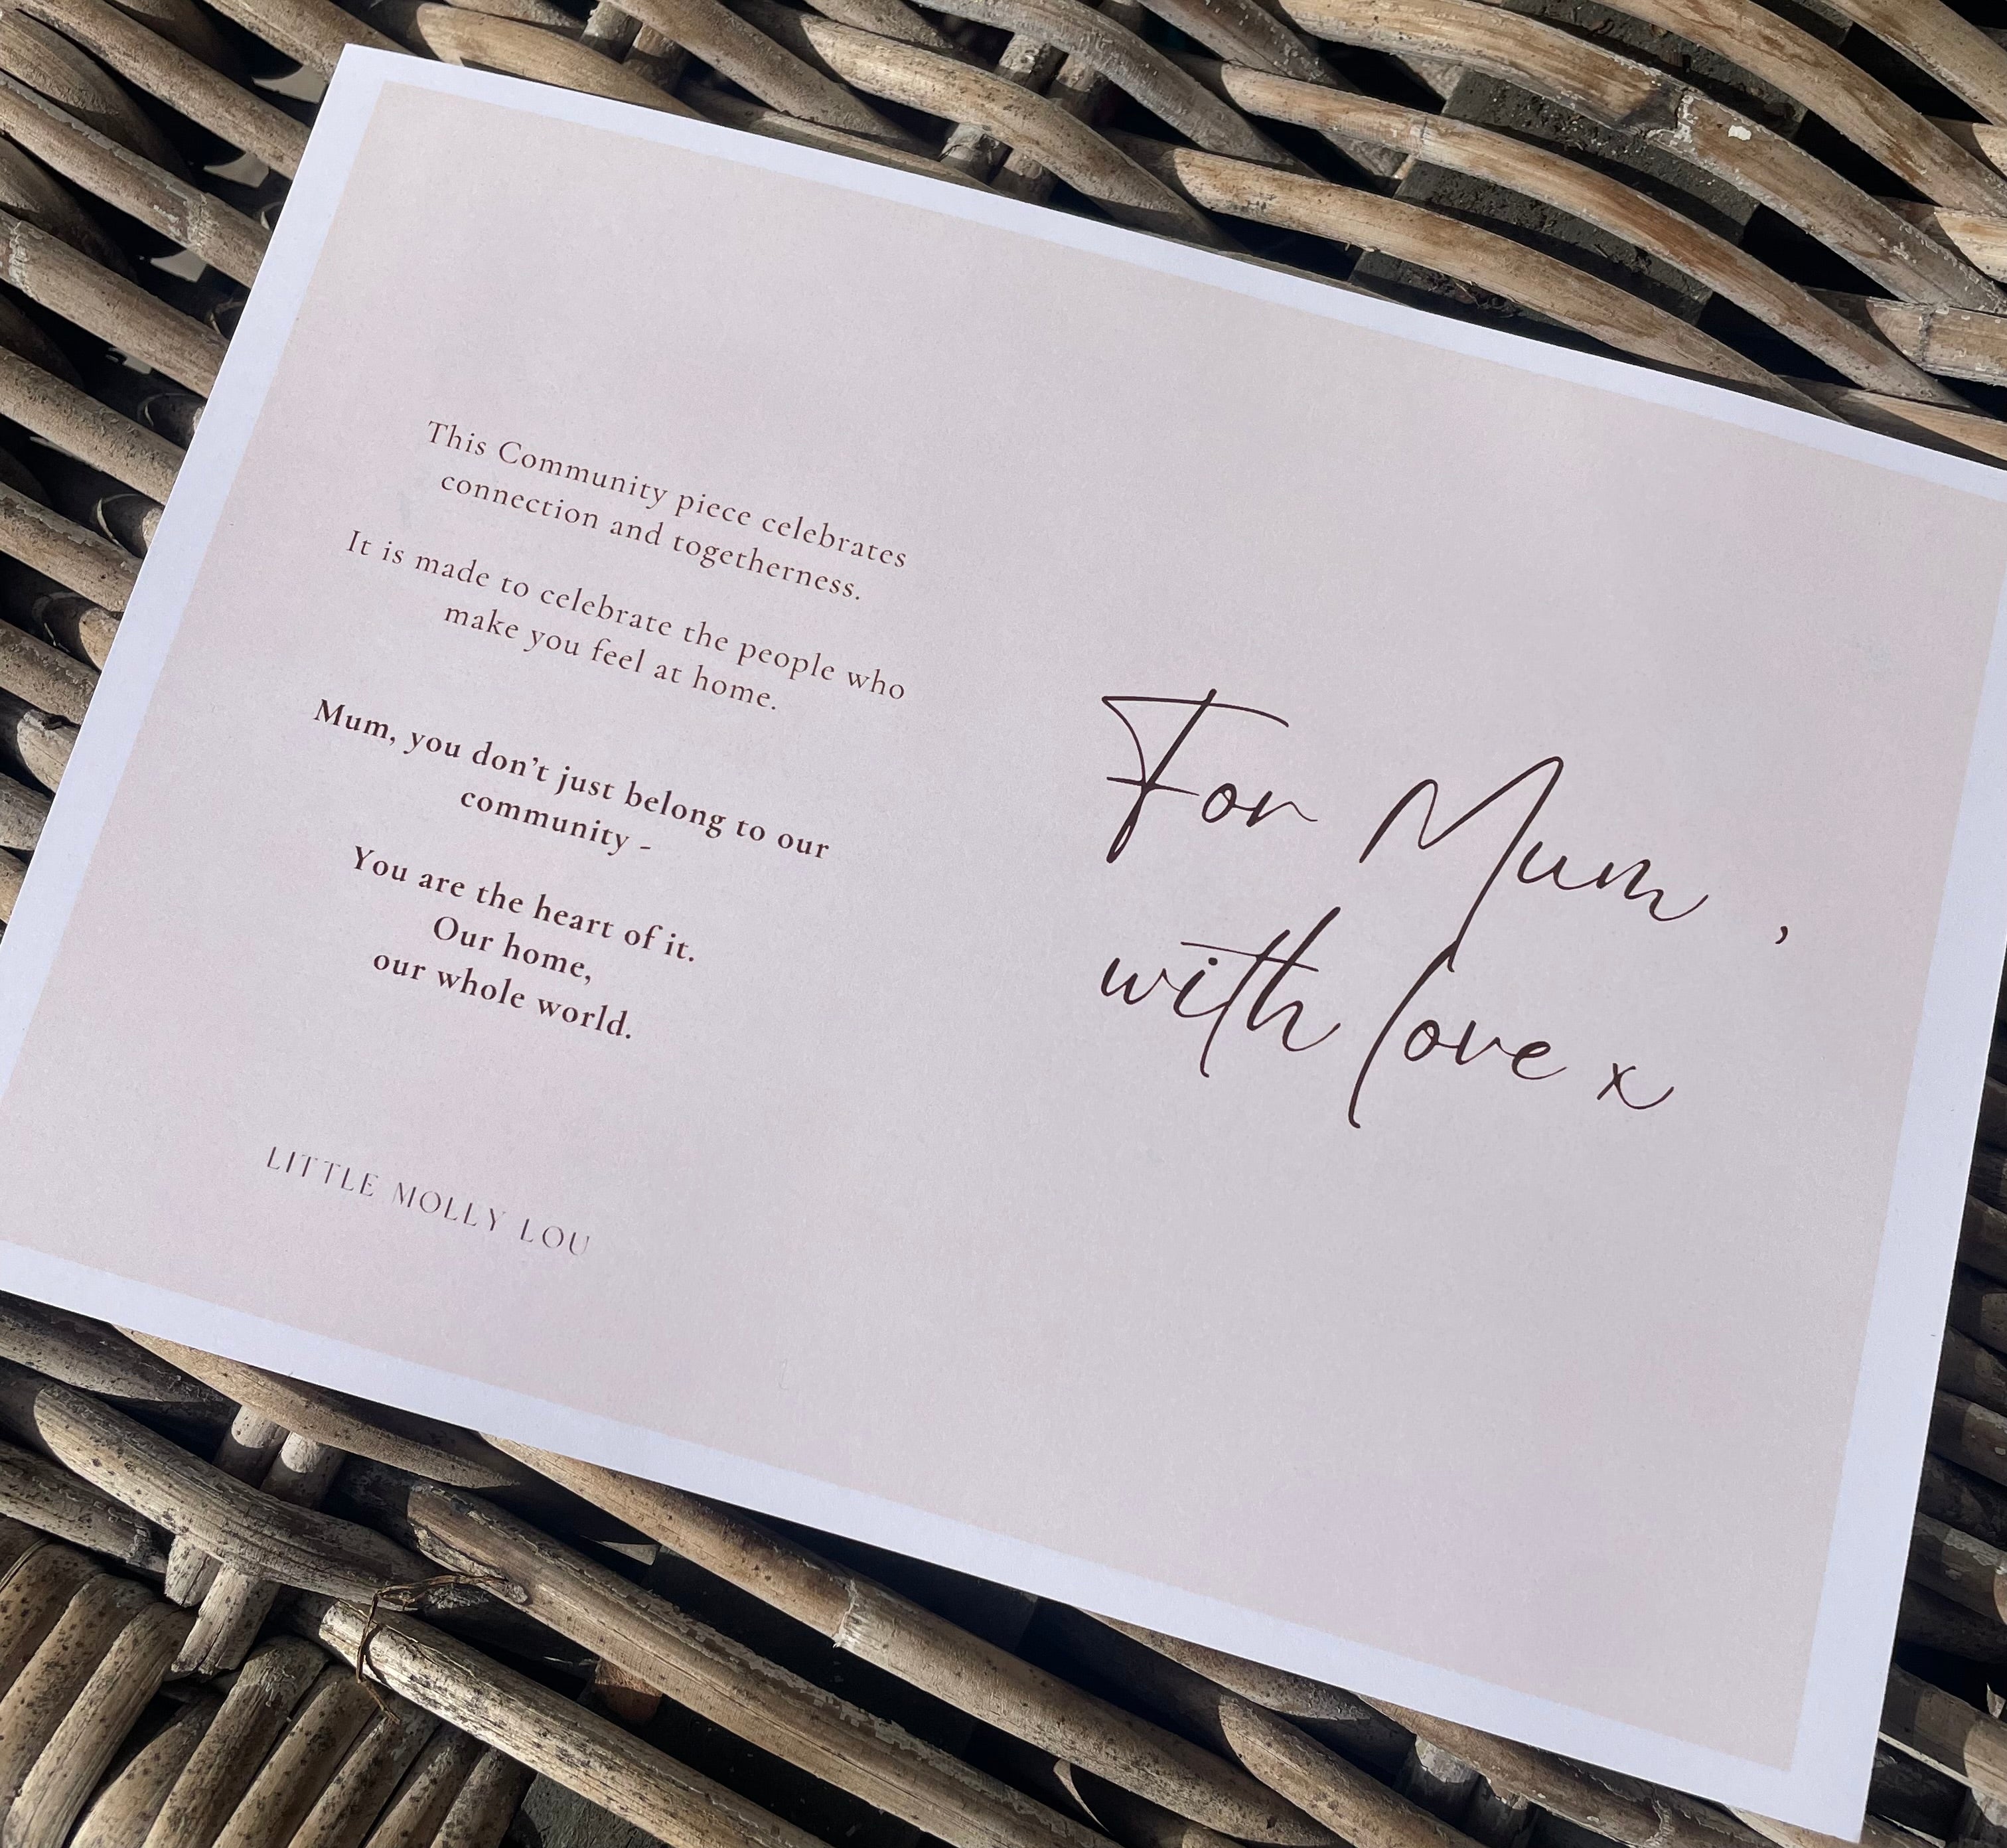 This Community piece celebrates
connection and togetherness.
It is made to celebrate the people who
make you feel at home.
Mum, you don’t just belong to our
community -
You are the heart of it.
Our home,
our whole world.
LITTLE MOLLY LOU
For Mum ,
with love x